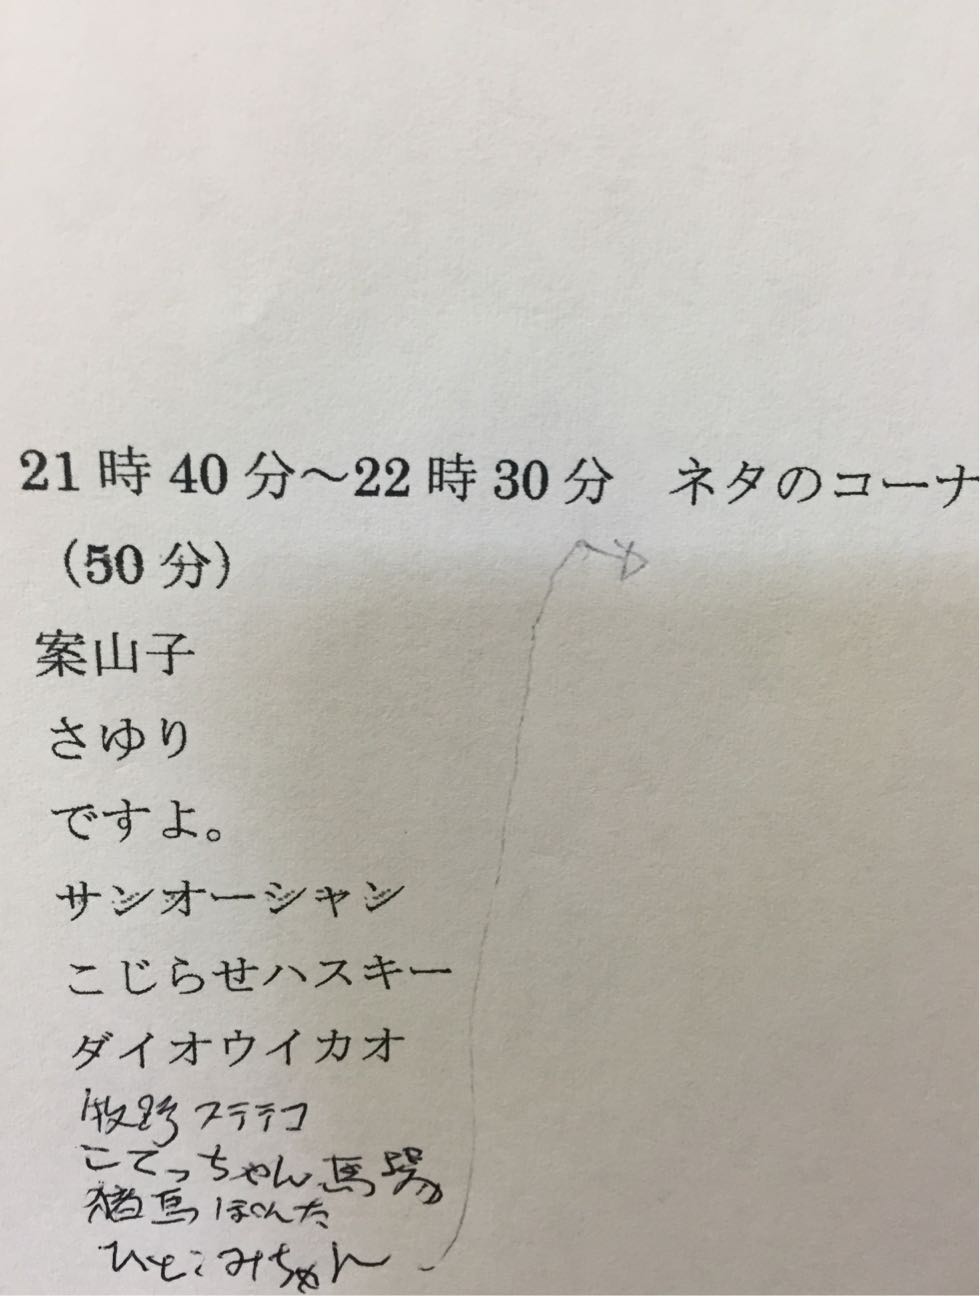 21時40分～22時30分　ネタのコーナ
（50分）
案山子
さゆり
ですよ。
サンオーシャン
こじらせハスキー
ダイオウイカオ
牧野ステテコ
こてっちゃん馬場
猪馬ぽんた
ひとこみちゃん